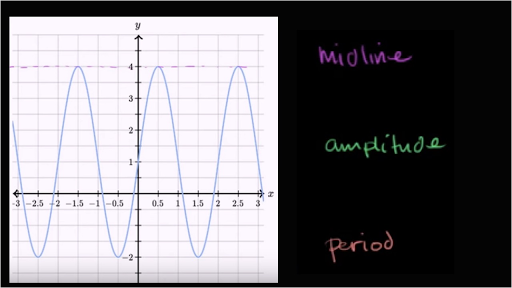 y
midline
4
3
2
1
-3 -2.5 -2 -1.5 -1 -0.5 0.5 1 1.5 2 2.5 3 x
amplitude
-2
period